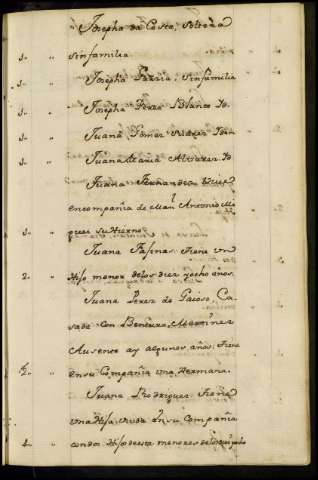 Josepha da Costa, Soltera
1.. " Sin familia
1.. " Josepha Sin familia
1.. " Josepha Perez Blanco Yo.
1.. " Juana Gomez
1.. " Juana Maria Alvarez Yo
Juana Fernandez Viud
en compañia de Man.l Antonio Mi
1.. " quez su Yerno
Juana Fasinas. tiene un
2.. " Hijo menor de los diez y ocho años.
Juana Perez de Paioso, Ca
sada con Benito Martinez
Ausente ay algunos años. tiene
2.. " en su Compañia una Hermana.
Juana Rodriguez tiene
una Hija viuda en su Compañia
4.. " con dos Hijos de esta menores de los